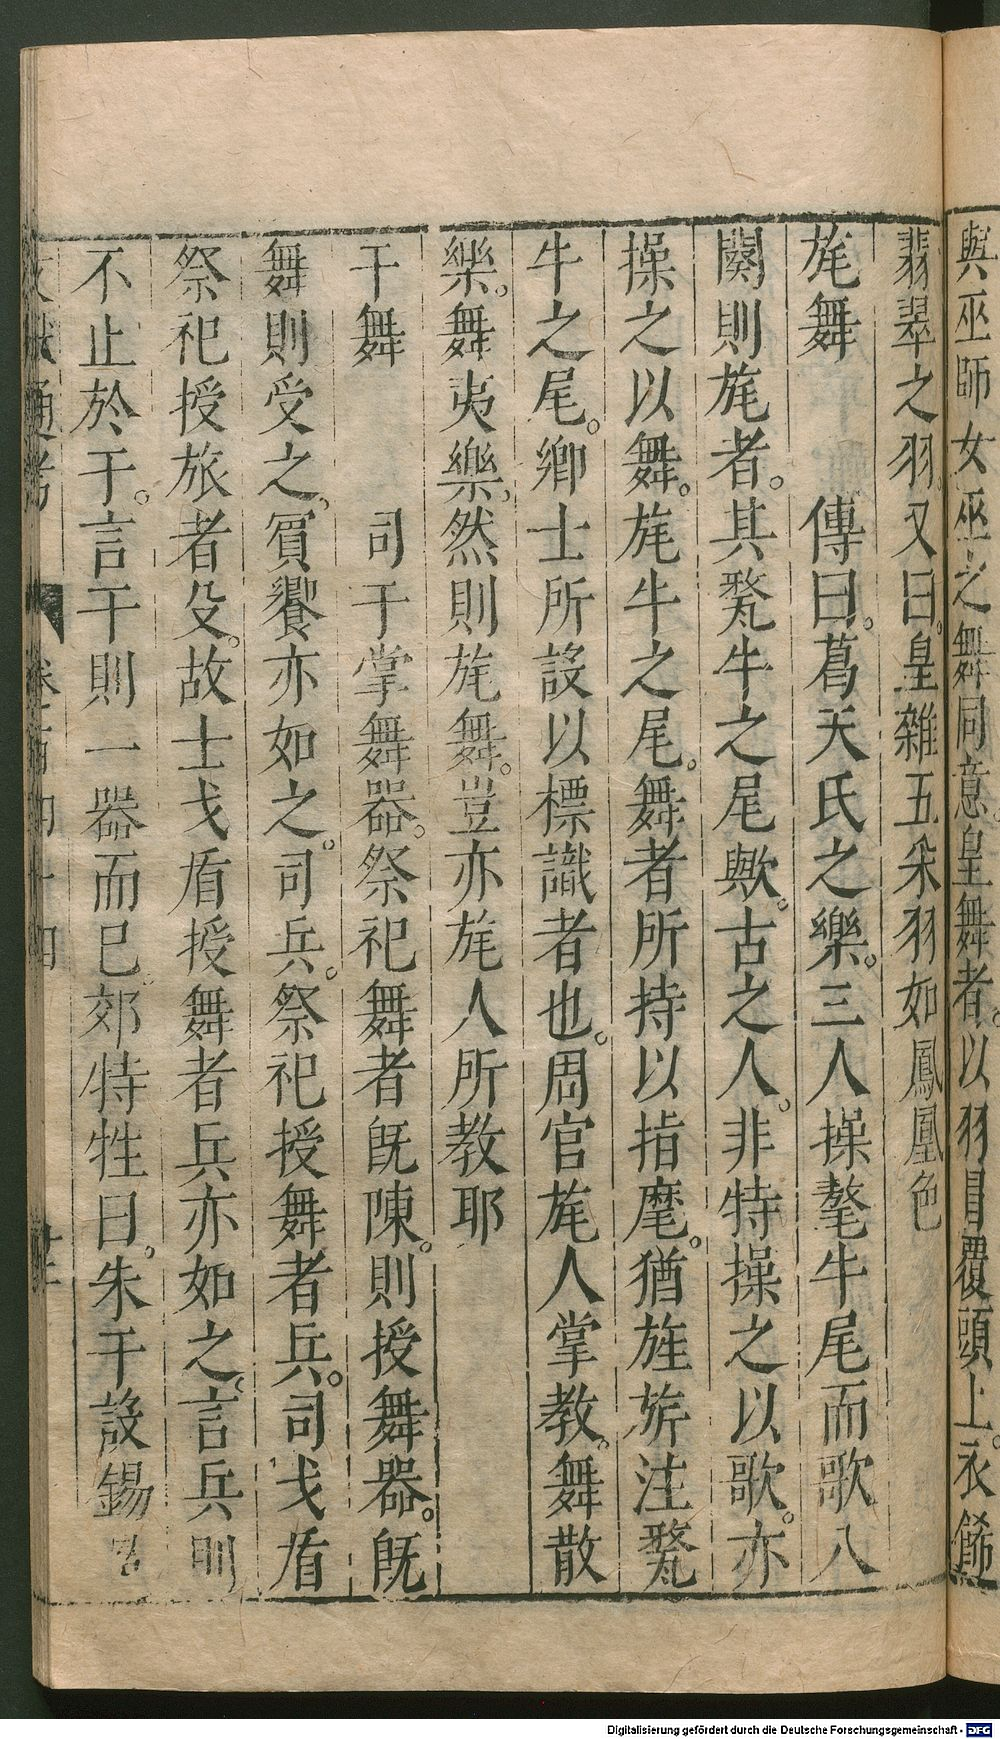 與巫師女巫之舞同意。皇舞者。以羽冒覆頭上。衣飾
翡翠之羽。又曰。皇雜五采羽如鳳凰色
旄舞　　傳曰。葛天氏之樂。三人操氂牛尾而歌八
闋則旄者。其氂牛之尾歟。古之人。非特操之以歌。亦
操之以舞。旄牛之尾。舞者所持以指麾。猶旌旂注氂
牛之尾。卿士所設以標識者也。周官旄人掌教。舞散
樂。舞夷樂。然則旄舞。豈亦旄人所教耶
干舞　　司干掌舞器。祭祀舞者旣陳。則授舞器。旣
舞則受之。賔饗亦如之。司兵。祭祀授舞者兵。司戈盾
祭祀授旅者殳。故士戈盾授舞者兵亦如之。言兵則
不止於干。言干則一器而已。郊特牲曰。朱干設錫
文獻通考　卷一百四十四
Digitalisierung gefördert durch die Deutsche Forschungsgemeinschaft - DFG